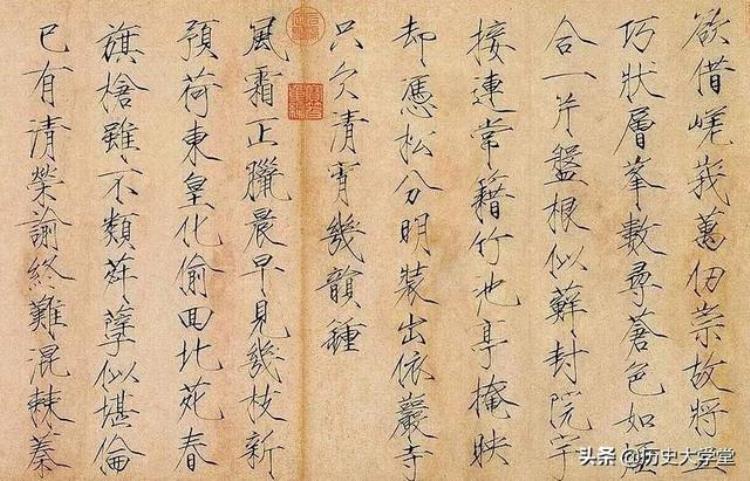 欲借嵯峩萬仞崇故將工
巧狀層峯數尋蒼色如煙
合一片盤根似蘚封院宇
接連常籍竹池亭掩映
却憑松分明裝出依巖寺
只欠清宵幾韻鍾
風霜正臘晨早見幾枝新
預荷東皇化偷囬北苑春
旗槍雖不類荈孽似堪倫
已有清榮諭終難混棘蓁
头条 @历史大学堂